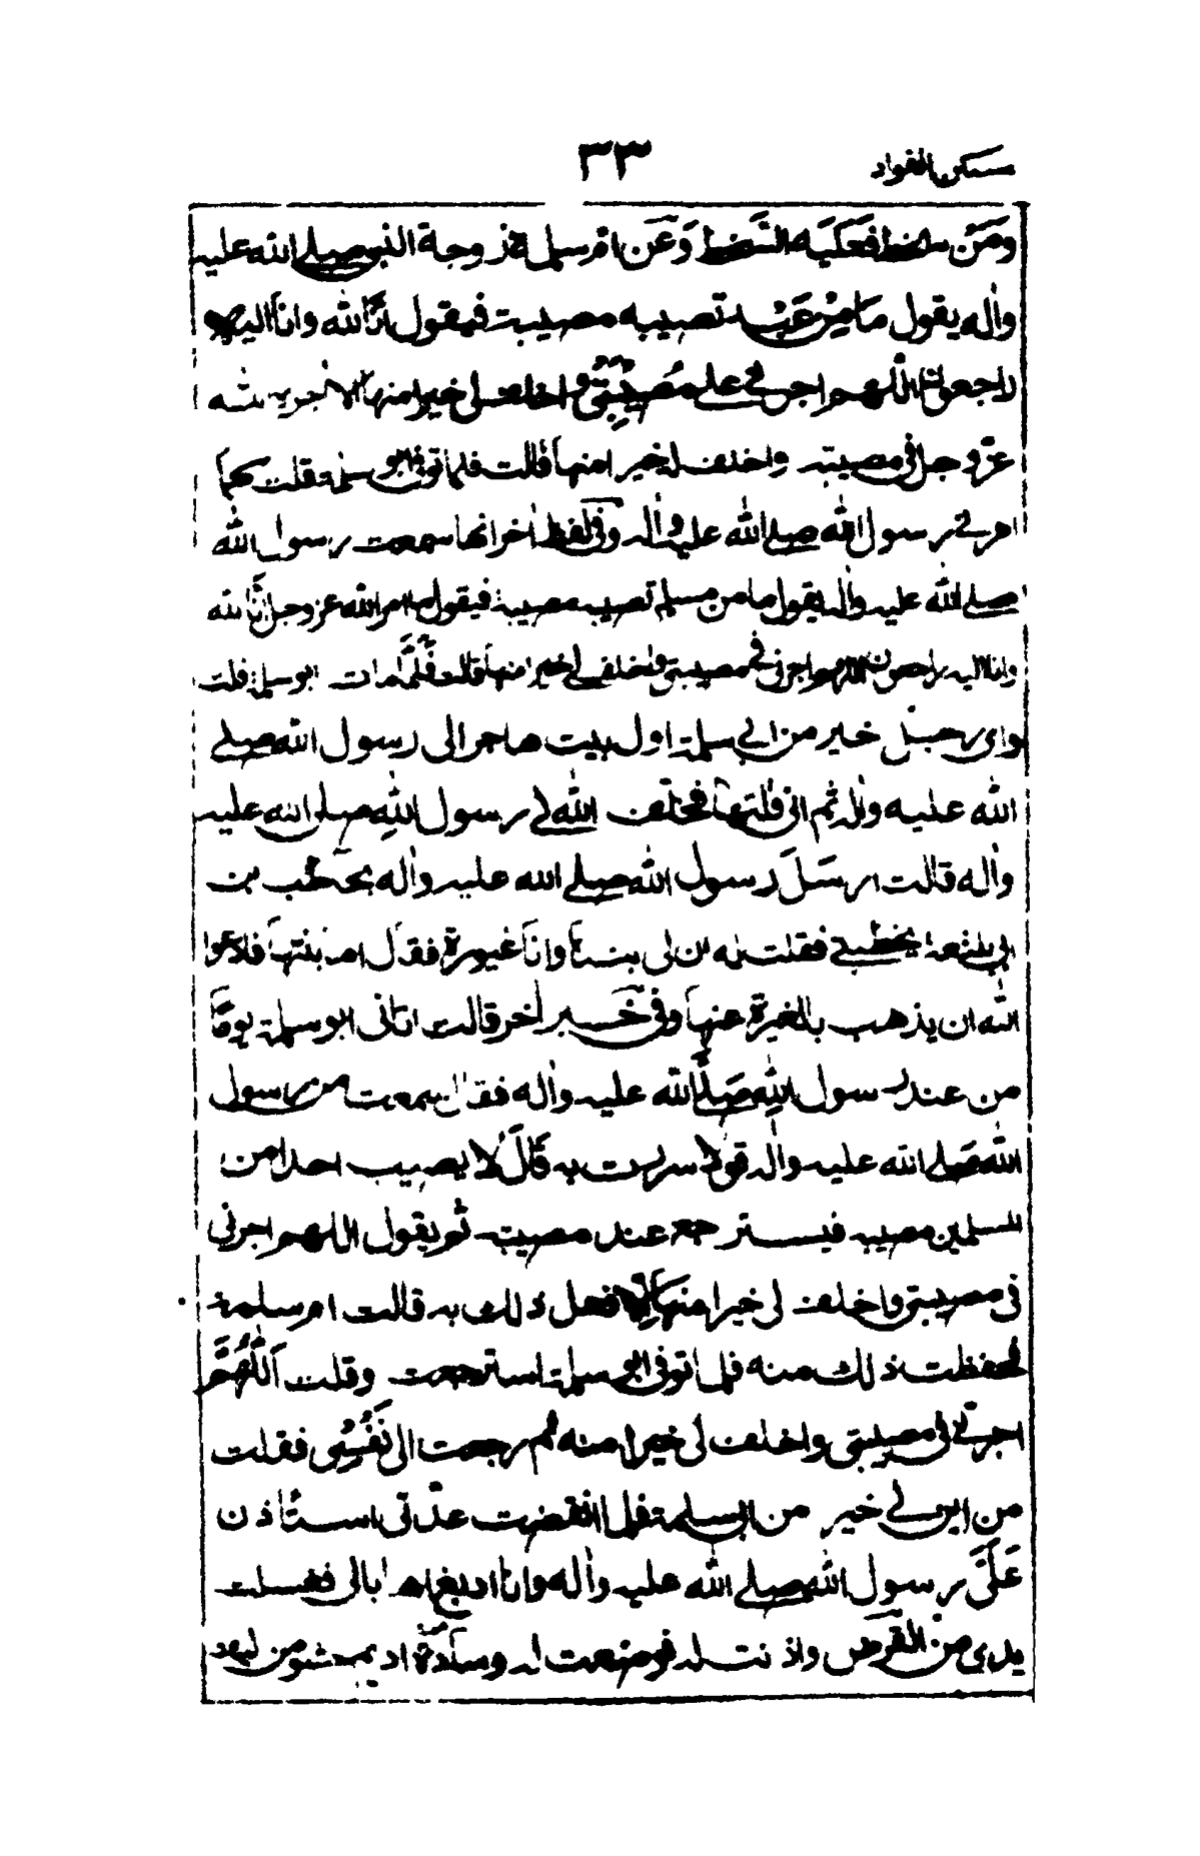 مسكن الفواد
٣٣
ومَن سخط فعَليَه السَّخط وَعَن ام سلمة زوجة النبي صلى الله عليه
واٰله يقول ما مِن عَبد تصيبه مصيبة فيقول انّا لله وانا اليه
راجعون اللّهم اجرني على مُصيبَتي واخلف لي خيرا منها الا اجره الله
عزّ وجل في مصيبته واخلف له خيرا منها قالت فلما توفي ابو سلمة قلت كما
امرني رسول الله صلى الله عليه واٰله وفي لفظ اٰخر انها سمعت رسول الله
صلى الله عليه واٰله يقول ما من مسلم تصيبه مصيبة فيقول ما امر الله عز وجل انّا لله
وانا اليه راجعون اللهم اجرني في مصيبتي واخلف لي خيرا منها قالت فَلمّا مات ابو سلمة قلت
واي رجل خير من ابي سلمة اول بيت هاجر الى رسول الله صلى
الله عليه واٰله ثم اني قلتها فخلف الله لي رسول الله صلى الله عليه
واٰله قالت ارسَلَ رسول الله صلى الله عليه واٰله بحاطب بن
ابي بلتعة يخطبني فقلت له ان لي بنتا وانا غيورة فقال اما بنتها فادعوا
الله ان يذهب بالغيرة عنها وفي خَبر اٰخر قالت اتاني ابو سلمة يومًا
من عند رسول الله صَلَّى الله عليه واٰله فقال سمعت من رسول
الله صَلى الله عليه واٰله قولا سررت به قَالَ لا يصيب احدا من
المسلمين مصيبة فيسترجع عند مصيبته ثم يقول اللهم اجرني
في مصيبتي واخلف لي خيرا منها الا فعل ذلك به قالت ام سلمة
فحفظت ذلك منه فلما توفي ابو سلمة استرجعت وقلت اَللّٰهُمَّ
اجرني في مصيبتي واخلف لي خيرا منه ثم رجعت الى نَفسِي فقلت
من اين لي خير من ابي سلمة فلما انقضت عدّتي استأذن
عَلَيَّ رسول الله صلى الله عليه واٰله وانا ادبغ اهابا لي فغسلت
يدي من القرض واذنت له فوضعت له وسادة ادم حشوها من ليف